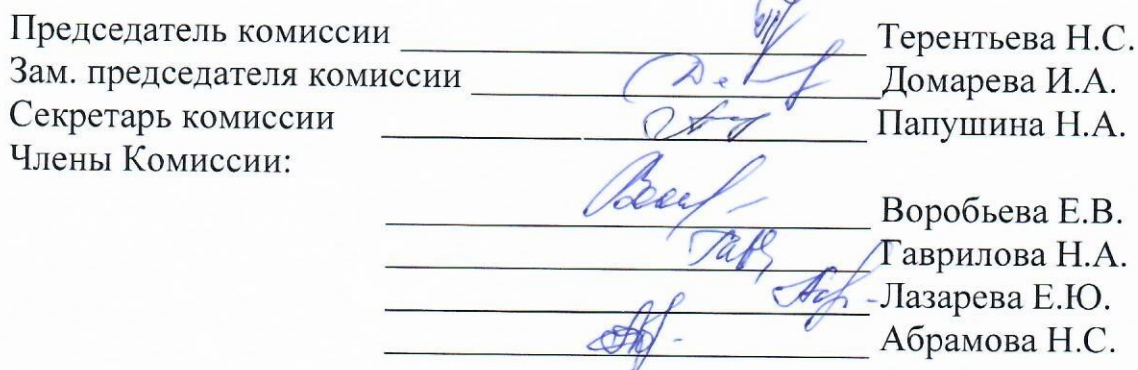 Председатель комиссии Терентьева Н.С.
Зам. председателя комиссии Домарева И.А.
Секретарь комиссии Папушина Н.А.
Члены Комиссии:
Воробьева Е.В.
Гаврилова Н.А.
Лазарева Е.Ю.
Абрамова Н.С.